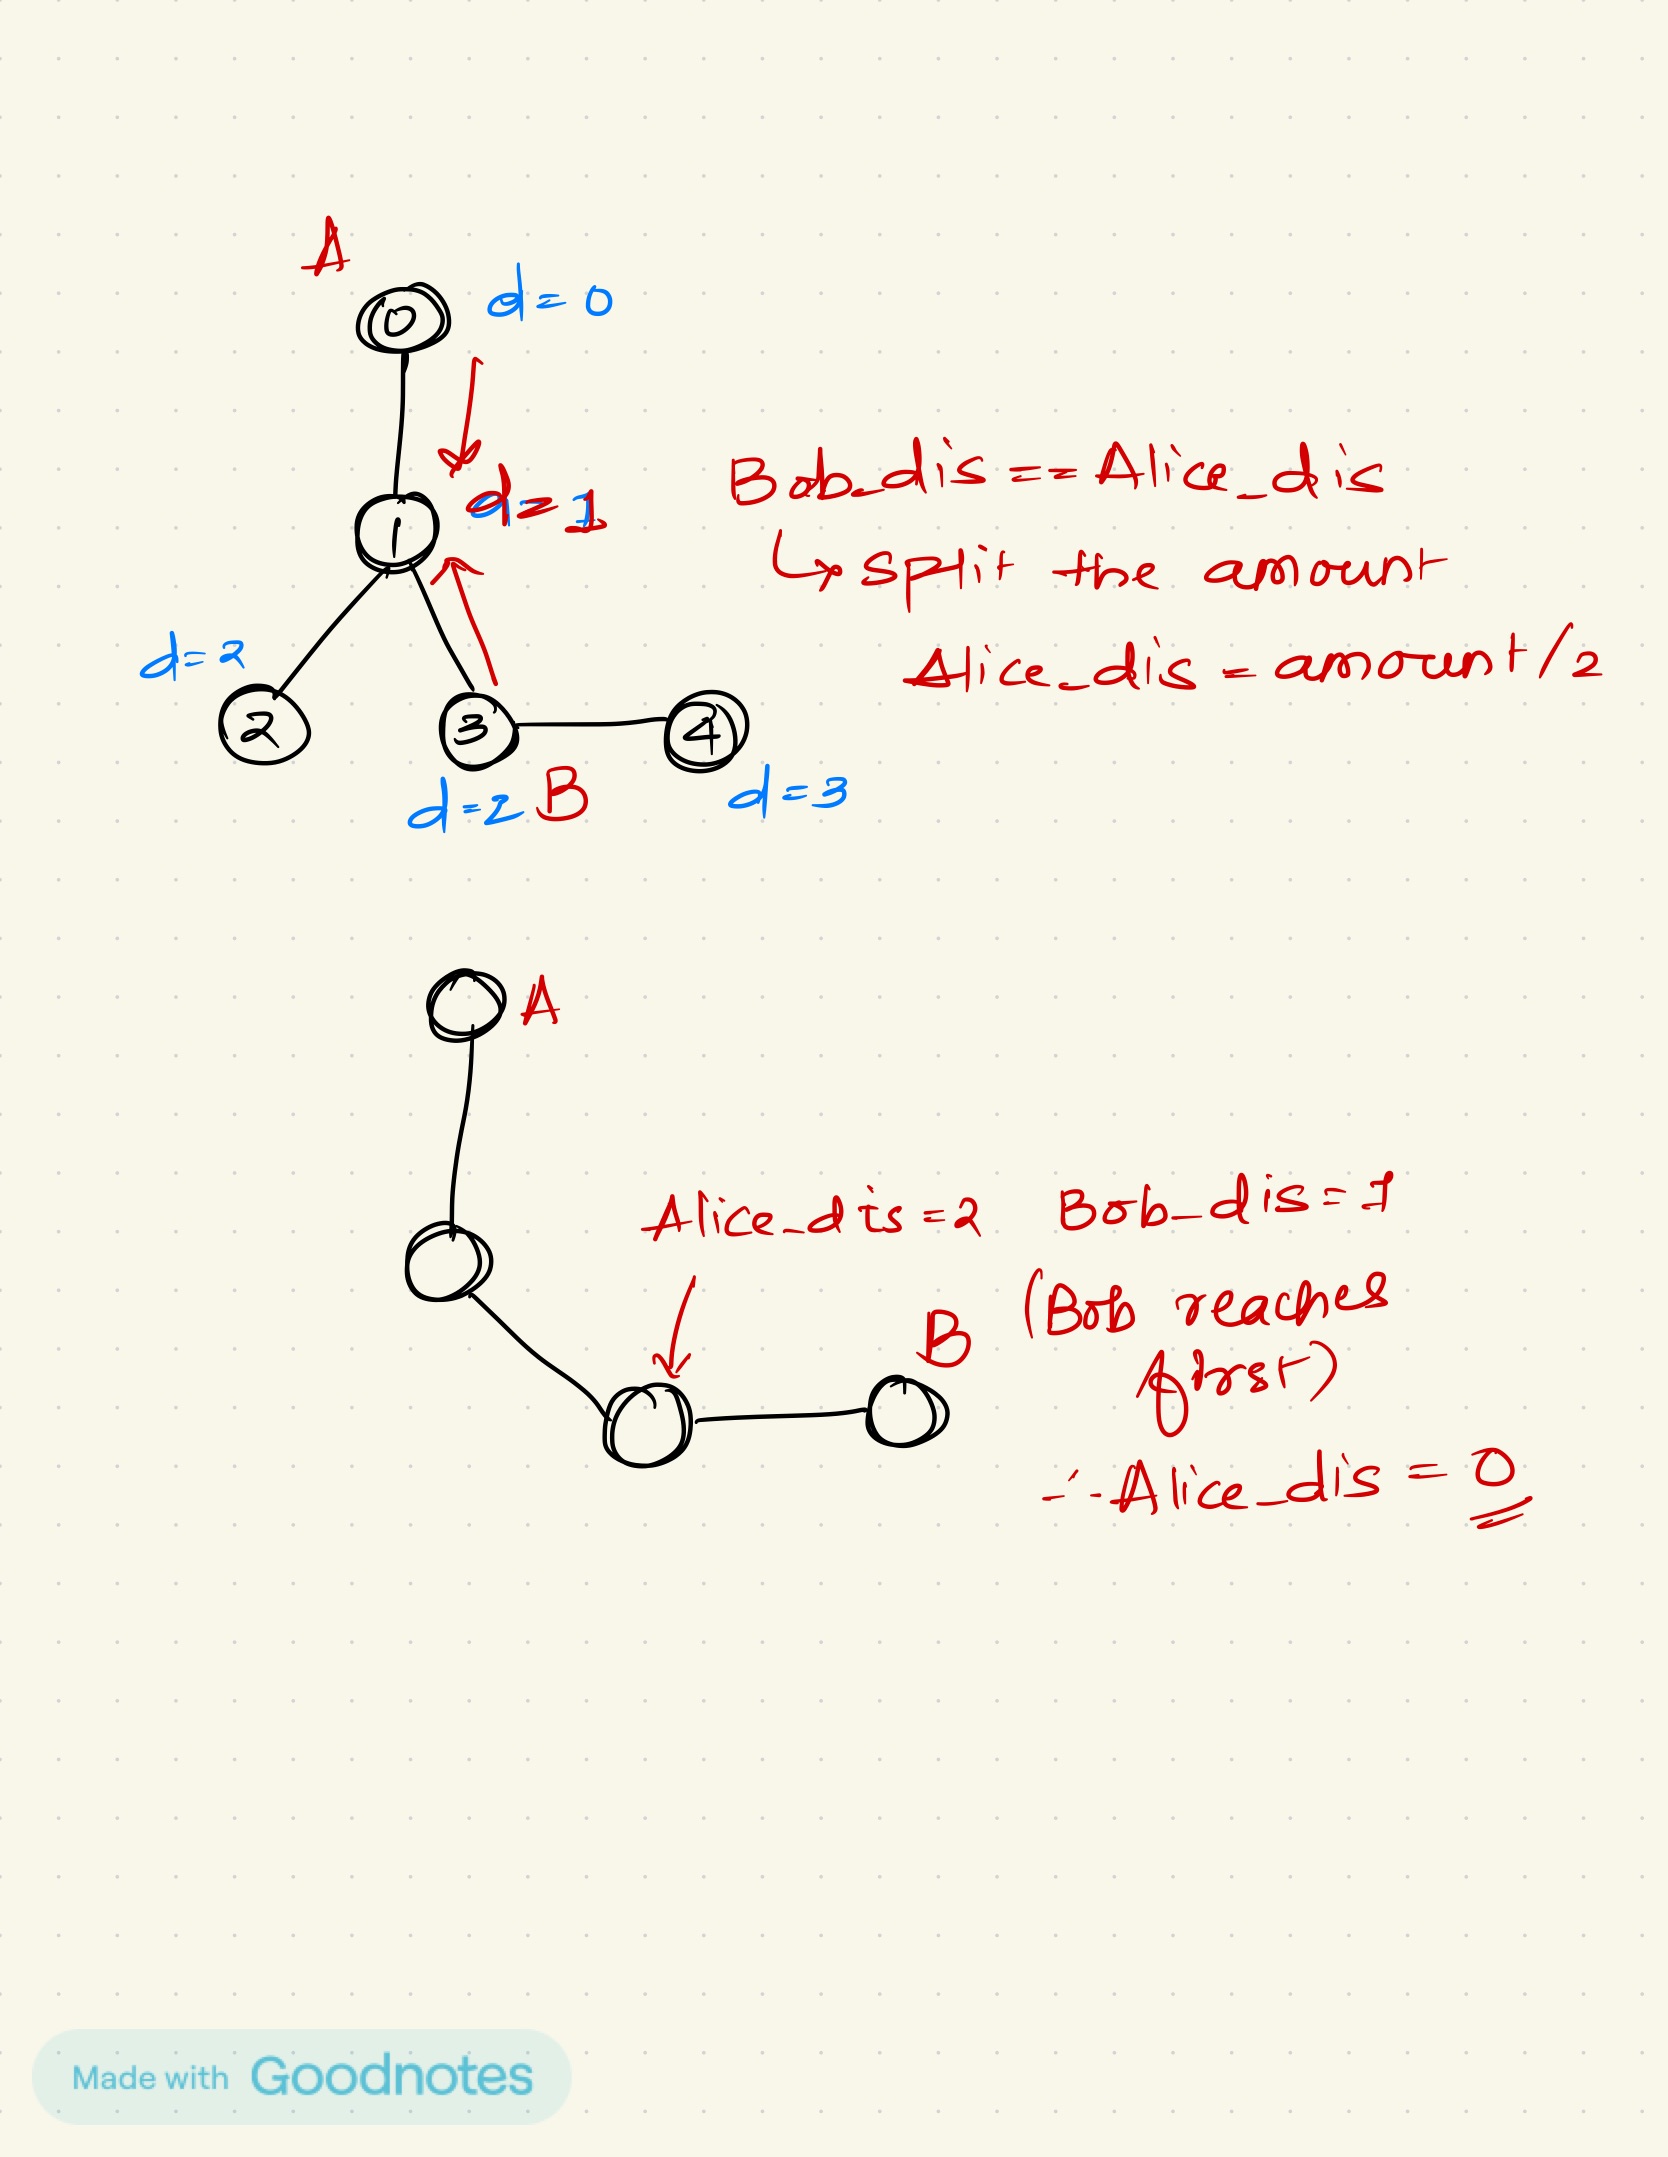 A
0
d=0
d=1
1
Bob_dis == Alice_dis
↳ split the amount
Alice_dis = amount/2
d=2
2
3
4
d=2 B
d=3
A
Alice_dis=2 Bob_dis=1
B
(Bob reaches
first)
∴ Alice_dis = 0
Made with Goodnotes